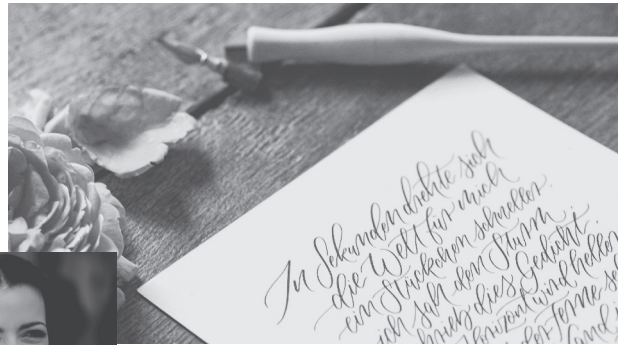 In Sekunden drehte sich
die Welt für mich
ein Stückchen schneller.
ich sah den Sturm,
schrieb dies Gedicht.
Horizont wird heller
der Ferne
Land